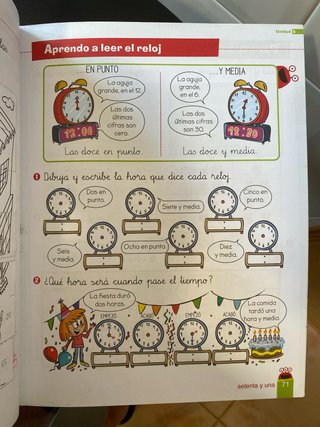 Unidad 5
Aprendo a leer el reloj
...EN PUNTO
La aguja
grande, en el 12.
Las dos
últimas
cifras son
cero.
12:00
Las doce en punto.
...Y MEDIA
La aguja
grande,
en el 6.
Las dos
últimas cifras
son 30.
12:30
Las doce y media.
1 Dibuja y escribe la hora que dice cada reloj.
Dos en
punto.
Siete y media.
Cinco en
punto.
Seis
y media.
Ocho en punto.
Diez
y media.
2 ¿Qué hora será cuando pase el tiempo?
La fiesta duró
dos horas.
EMPEZÓ
ACABÓ
EMPEZÓ
ACABÓ
La comida
tardó una
hora y media.
setenta y una
71